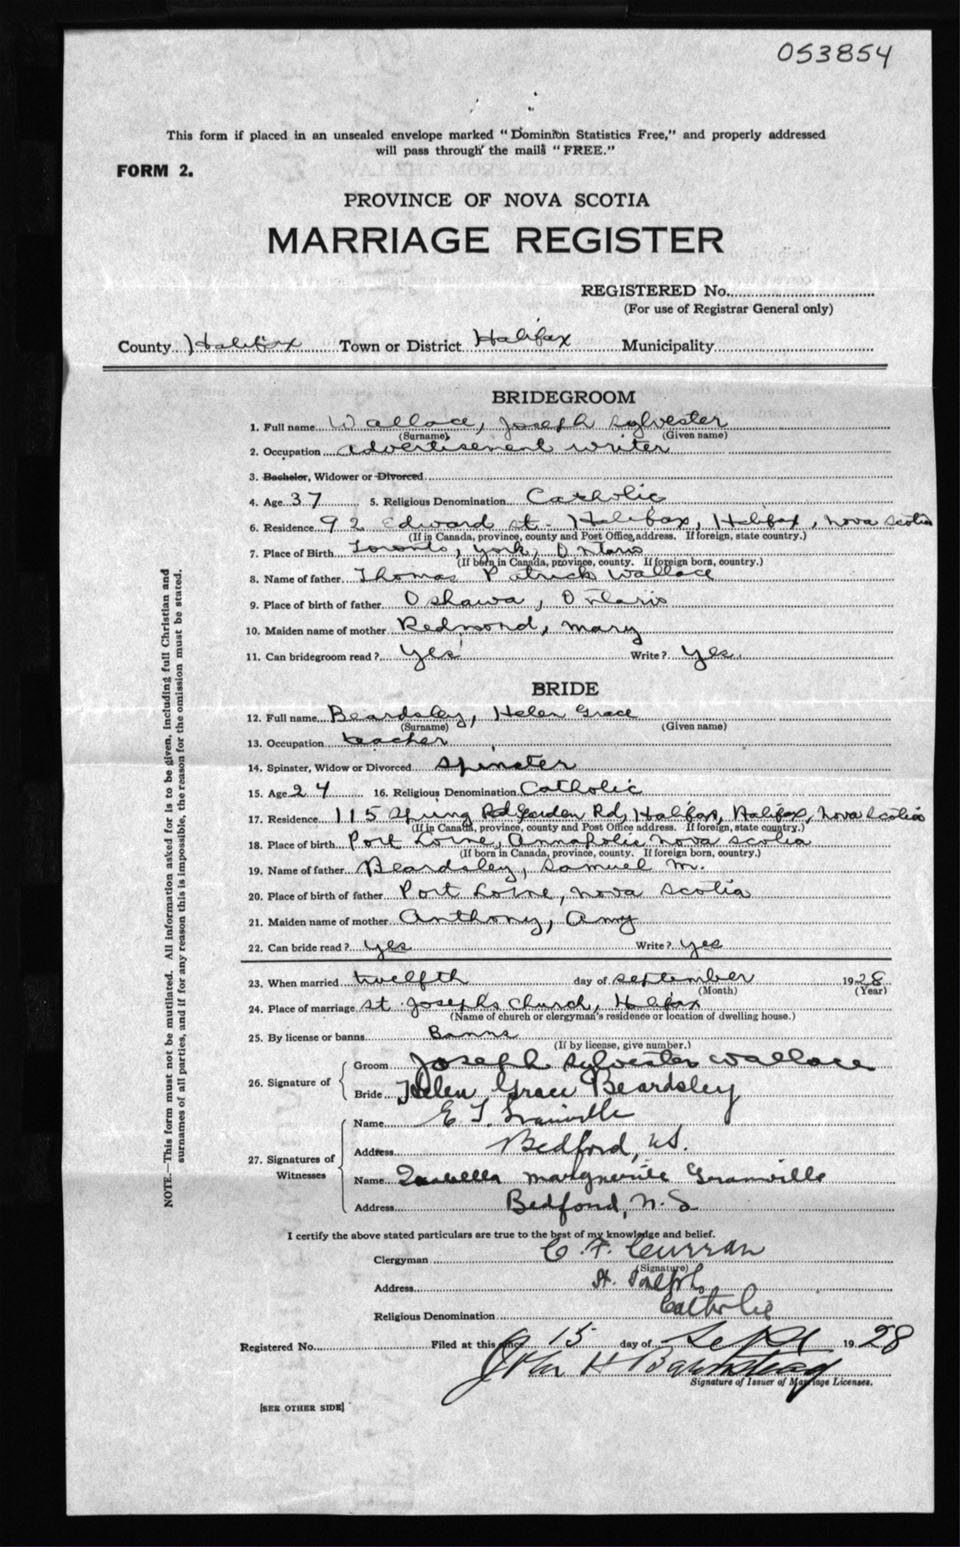 053854
This form if placed in an unsealed envelope marked "Dominion Statistics Free," and properly addressed
will pass through the mails "FREE."
FORM 2.
PROVINCE OF NOVA SCOTIA
MARRIAGE REGISTER
REGISTERED No.
(For use of Registrar General only)
County Halifax Town or District Halifax Municipality
BRIDEGROOM
1. Full name Wallace, Joseph Sylvester
(Surname) (Given name)
2. Occupation advertisement writer
3. Bachelor, Widower or Divorced
4. Age 37 5. Religious Denomination Catholic
6. Residence 92 Edward st. Halifax, Halifax, Nova Scotia
(If in Canada, province, county and Post Office address. If foreign, state country.)
7. Place of Birth Toronto, York, Ontario
(If born in Canada, province, county. If foreign born, country.)
8. Name of father Thomas Patrick Wallace
9. Place of birth of father Oshawa, Ontario
10. Maiden name of mother Redmond, Mary
11. Can bridegroom read? Yes Write? Yes.
BRIDE
12. Full name Beardsley, Helen Grace
(Surname) (Given name)
13. Occupation teacher
14. Spinster, Widow or Divorced Spinster
15. Age 24 16. Religious Denomination Catholic
17. Residence 115 Spring Rd Garden Rd, Halifax, Halifax, Nova Scotia
(If in Canada, province, county and Post Office address. If foreign, state country.)
18. Place of birth Port Lorne, Annapolis Nova Scotia
(If born in Canada, province, county. If foreign born, country.)
19. Name of father Beardsley, Samuel M.
20. Place of birth of father Port Lorne, Nova Scotia
21. Maiden name of mother Anthony, Amy
22. Can bride read? Yes Write? Yes
23. When married twelfth day of September 1928
(Month) (Year)
24. Place of marriage St. Josephs Church, Halifax
(Name of church or clergyman's residence or location of dwelling house.)
25. By license or banns Banns
(If by license, give number.)
26. Signature of
Groom Joseph Sylvester Wallace
Bride Helen Grace Beardsley
27. Signatures of Witnesses
Name E. Granville
Address Bedford, N.S.
Name Isabella Marguerite Granville
Address Bedford, N.S
I certify the above stated particulars are true to the best of my knowledge and belief.
Clergyman C. F. Curran
(Signature)
Address St. Josephs
Religious Denomination Catholic
Registered No. Filed at this office 15 day of Sept 1928
John H Barnstead
Signature of Issuer of Marriage Licenses.
[SEE OTHER SIDE]
NOTE.—This form must not be mutilated. All information asked for is to be given, including full Christian and
surnames of all parties, and if for any reason this is impossible, the reason for the omission must be stated.